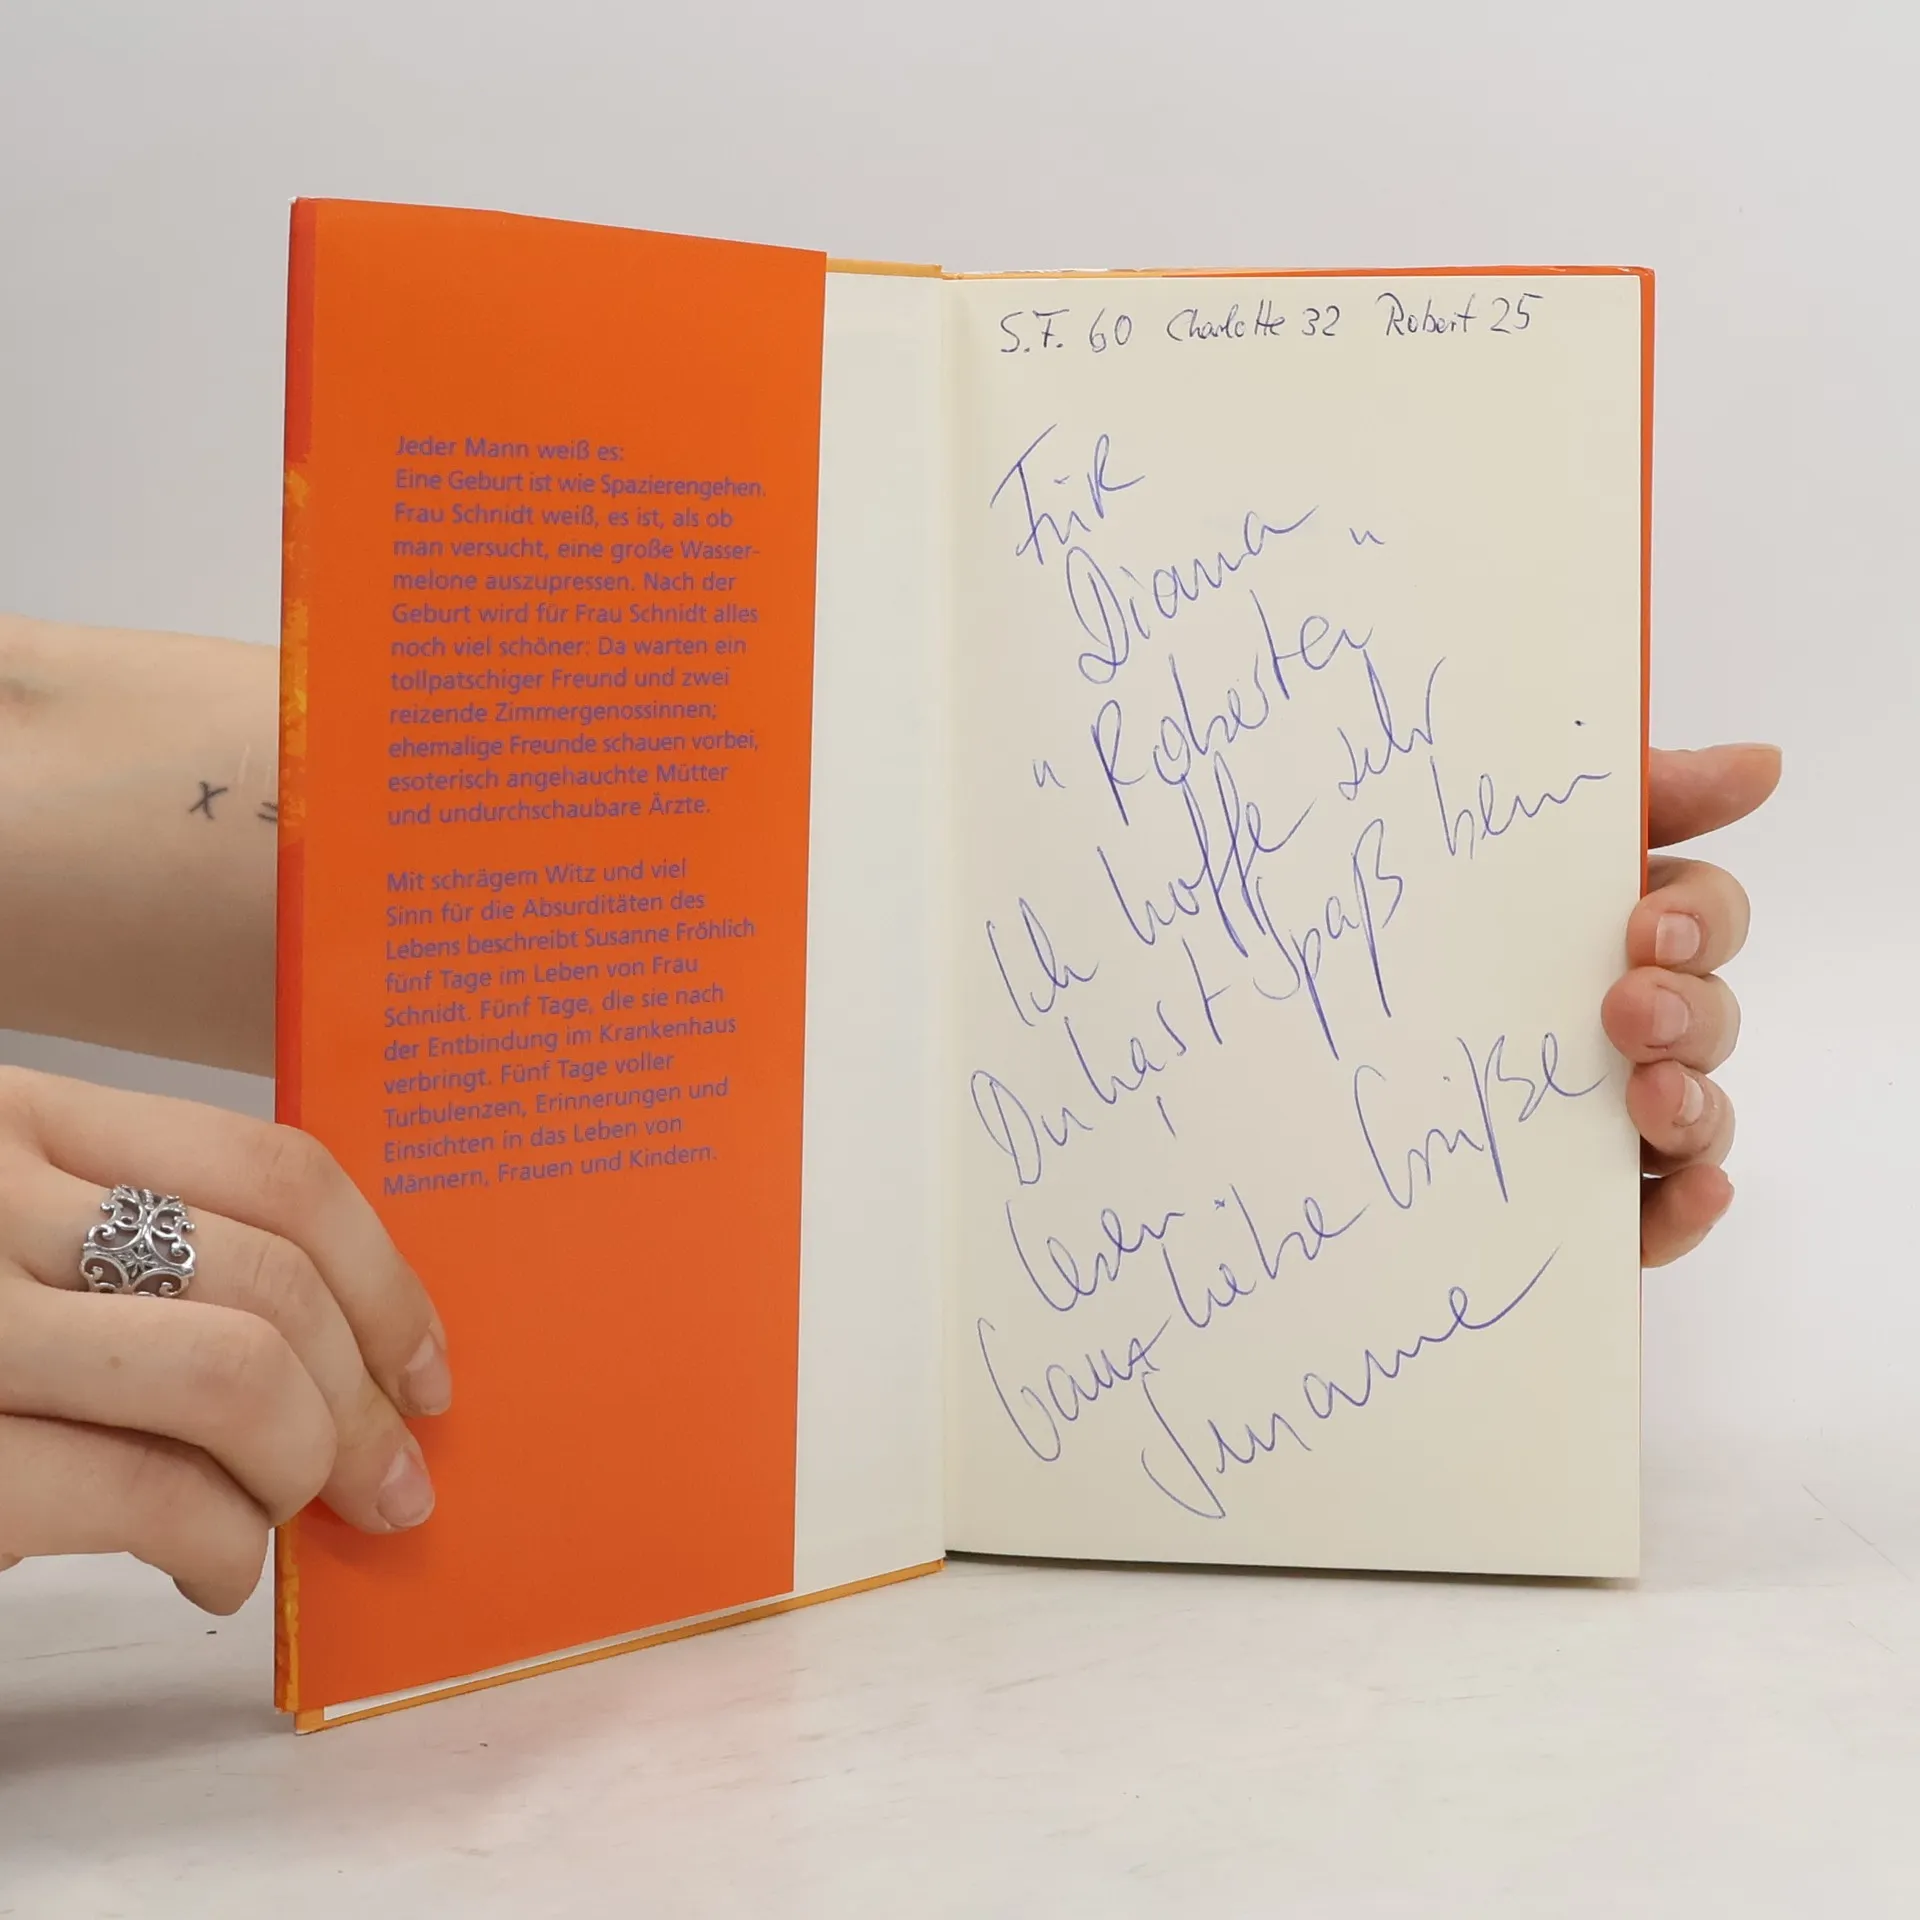 Jeder Mann weiß es:
Eine Geburt ist wie Spazierengehen.
Frau Schnidt weiß, es ist, als ob
man versucht, eine große Wasser-
melone auszupressen. Nach der
Geburt wird für Frau Schnidt alles
noch viel schöner: Da warten ein
tollpatschiger Freund und zwei
reizende Zimmergenossinnen;
ehemalige Freunde schauen vorbei,
esoterisch angehauchte Mütter
und undurchschaubare Ärzte.
Mit schrägem Witz und viel
Sinn für die Absurditäten des
Lebens beschreibt Susanne Fröhlich
fünf Tage im Leben von Frau
Schnidt. Fünf Tage, die sie nach
der Entbindung im Krankenhaus
verbringt. Fünf Tage voller
Turbulenzen, Erinnerungen und
Einsichten in das Leben von
Männern, Frauen und Kindern.
S.F. 60 Charlotte 32 Robert 25
Für
Diana
Ich hoffe sehr
Du hast Spaß beim
Lesen.
Ganz liebe Grüße
Susanne
x =